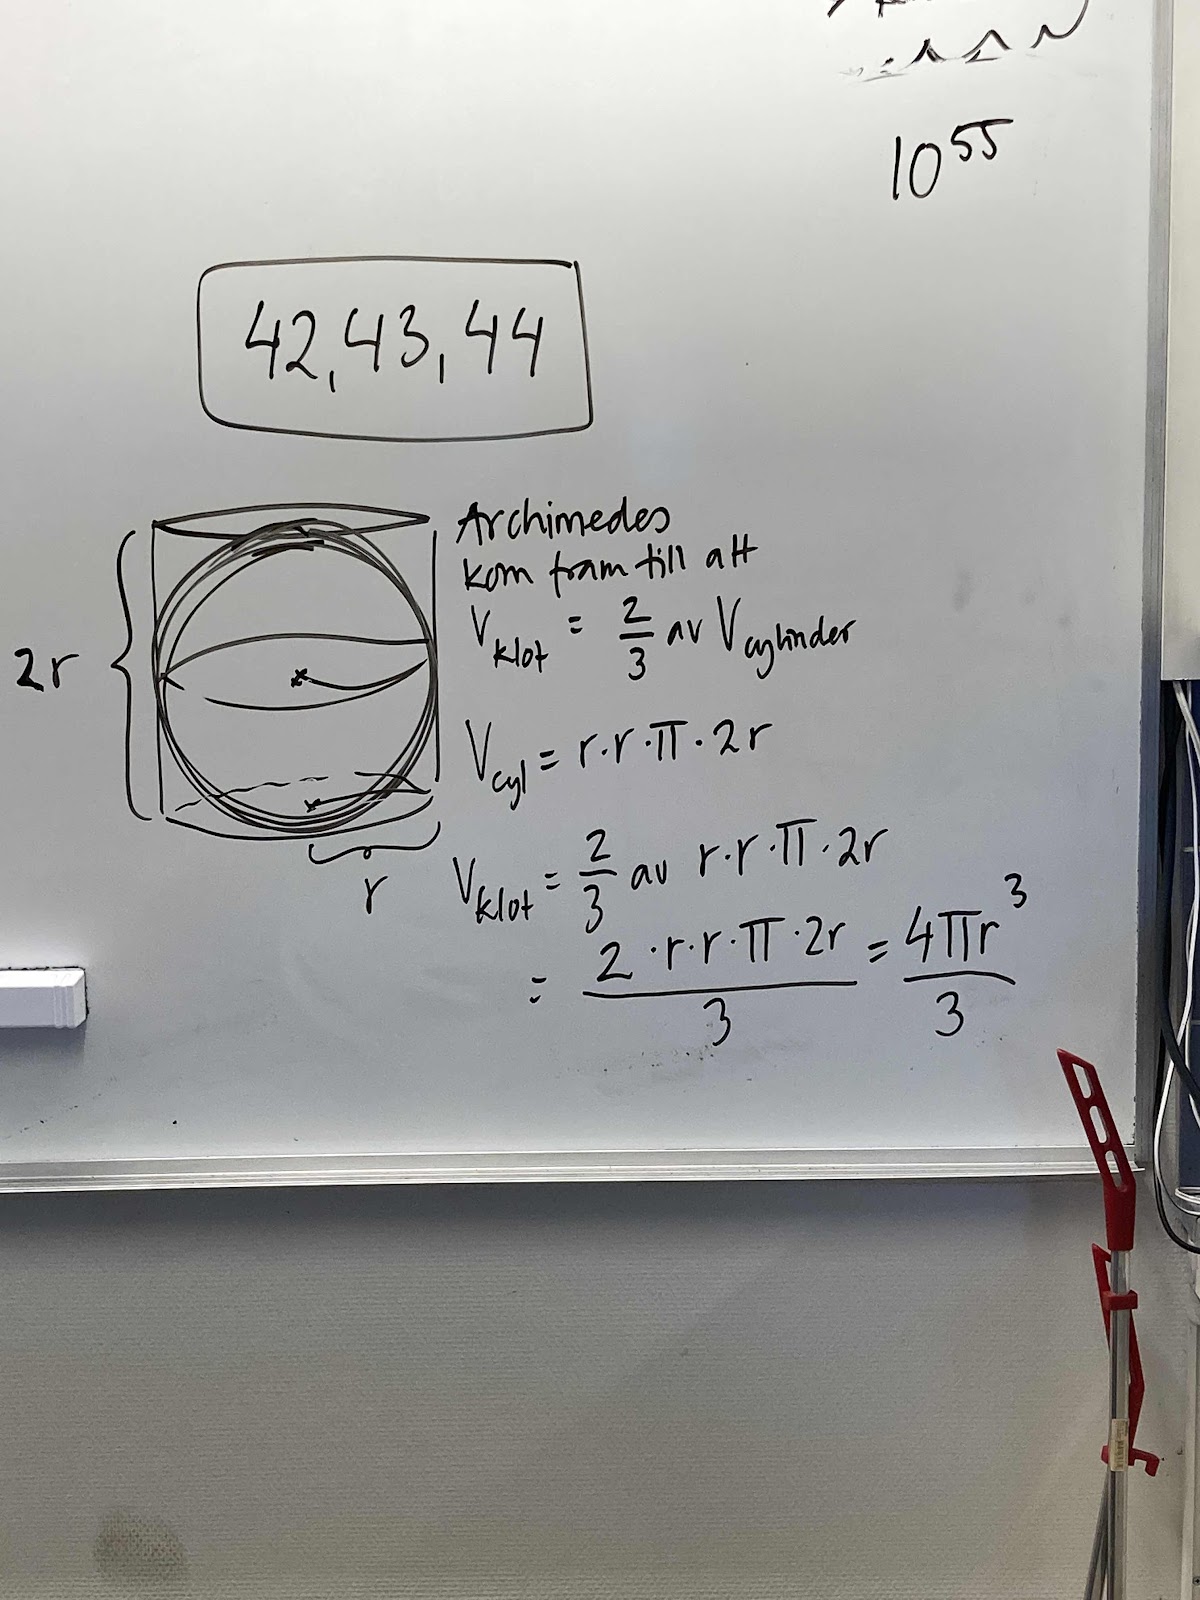 10⁵⁵
42, 43, 44
Archimedes
kom fram till att
V_klot = 2/3 av V_cylinder
2r
V_cyl = r·r·π·2r
V_klot = 2/3 av r·r·π·2r
r
= 2·r·r·π·2r/3 = 4πr³/3